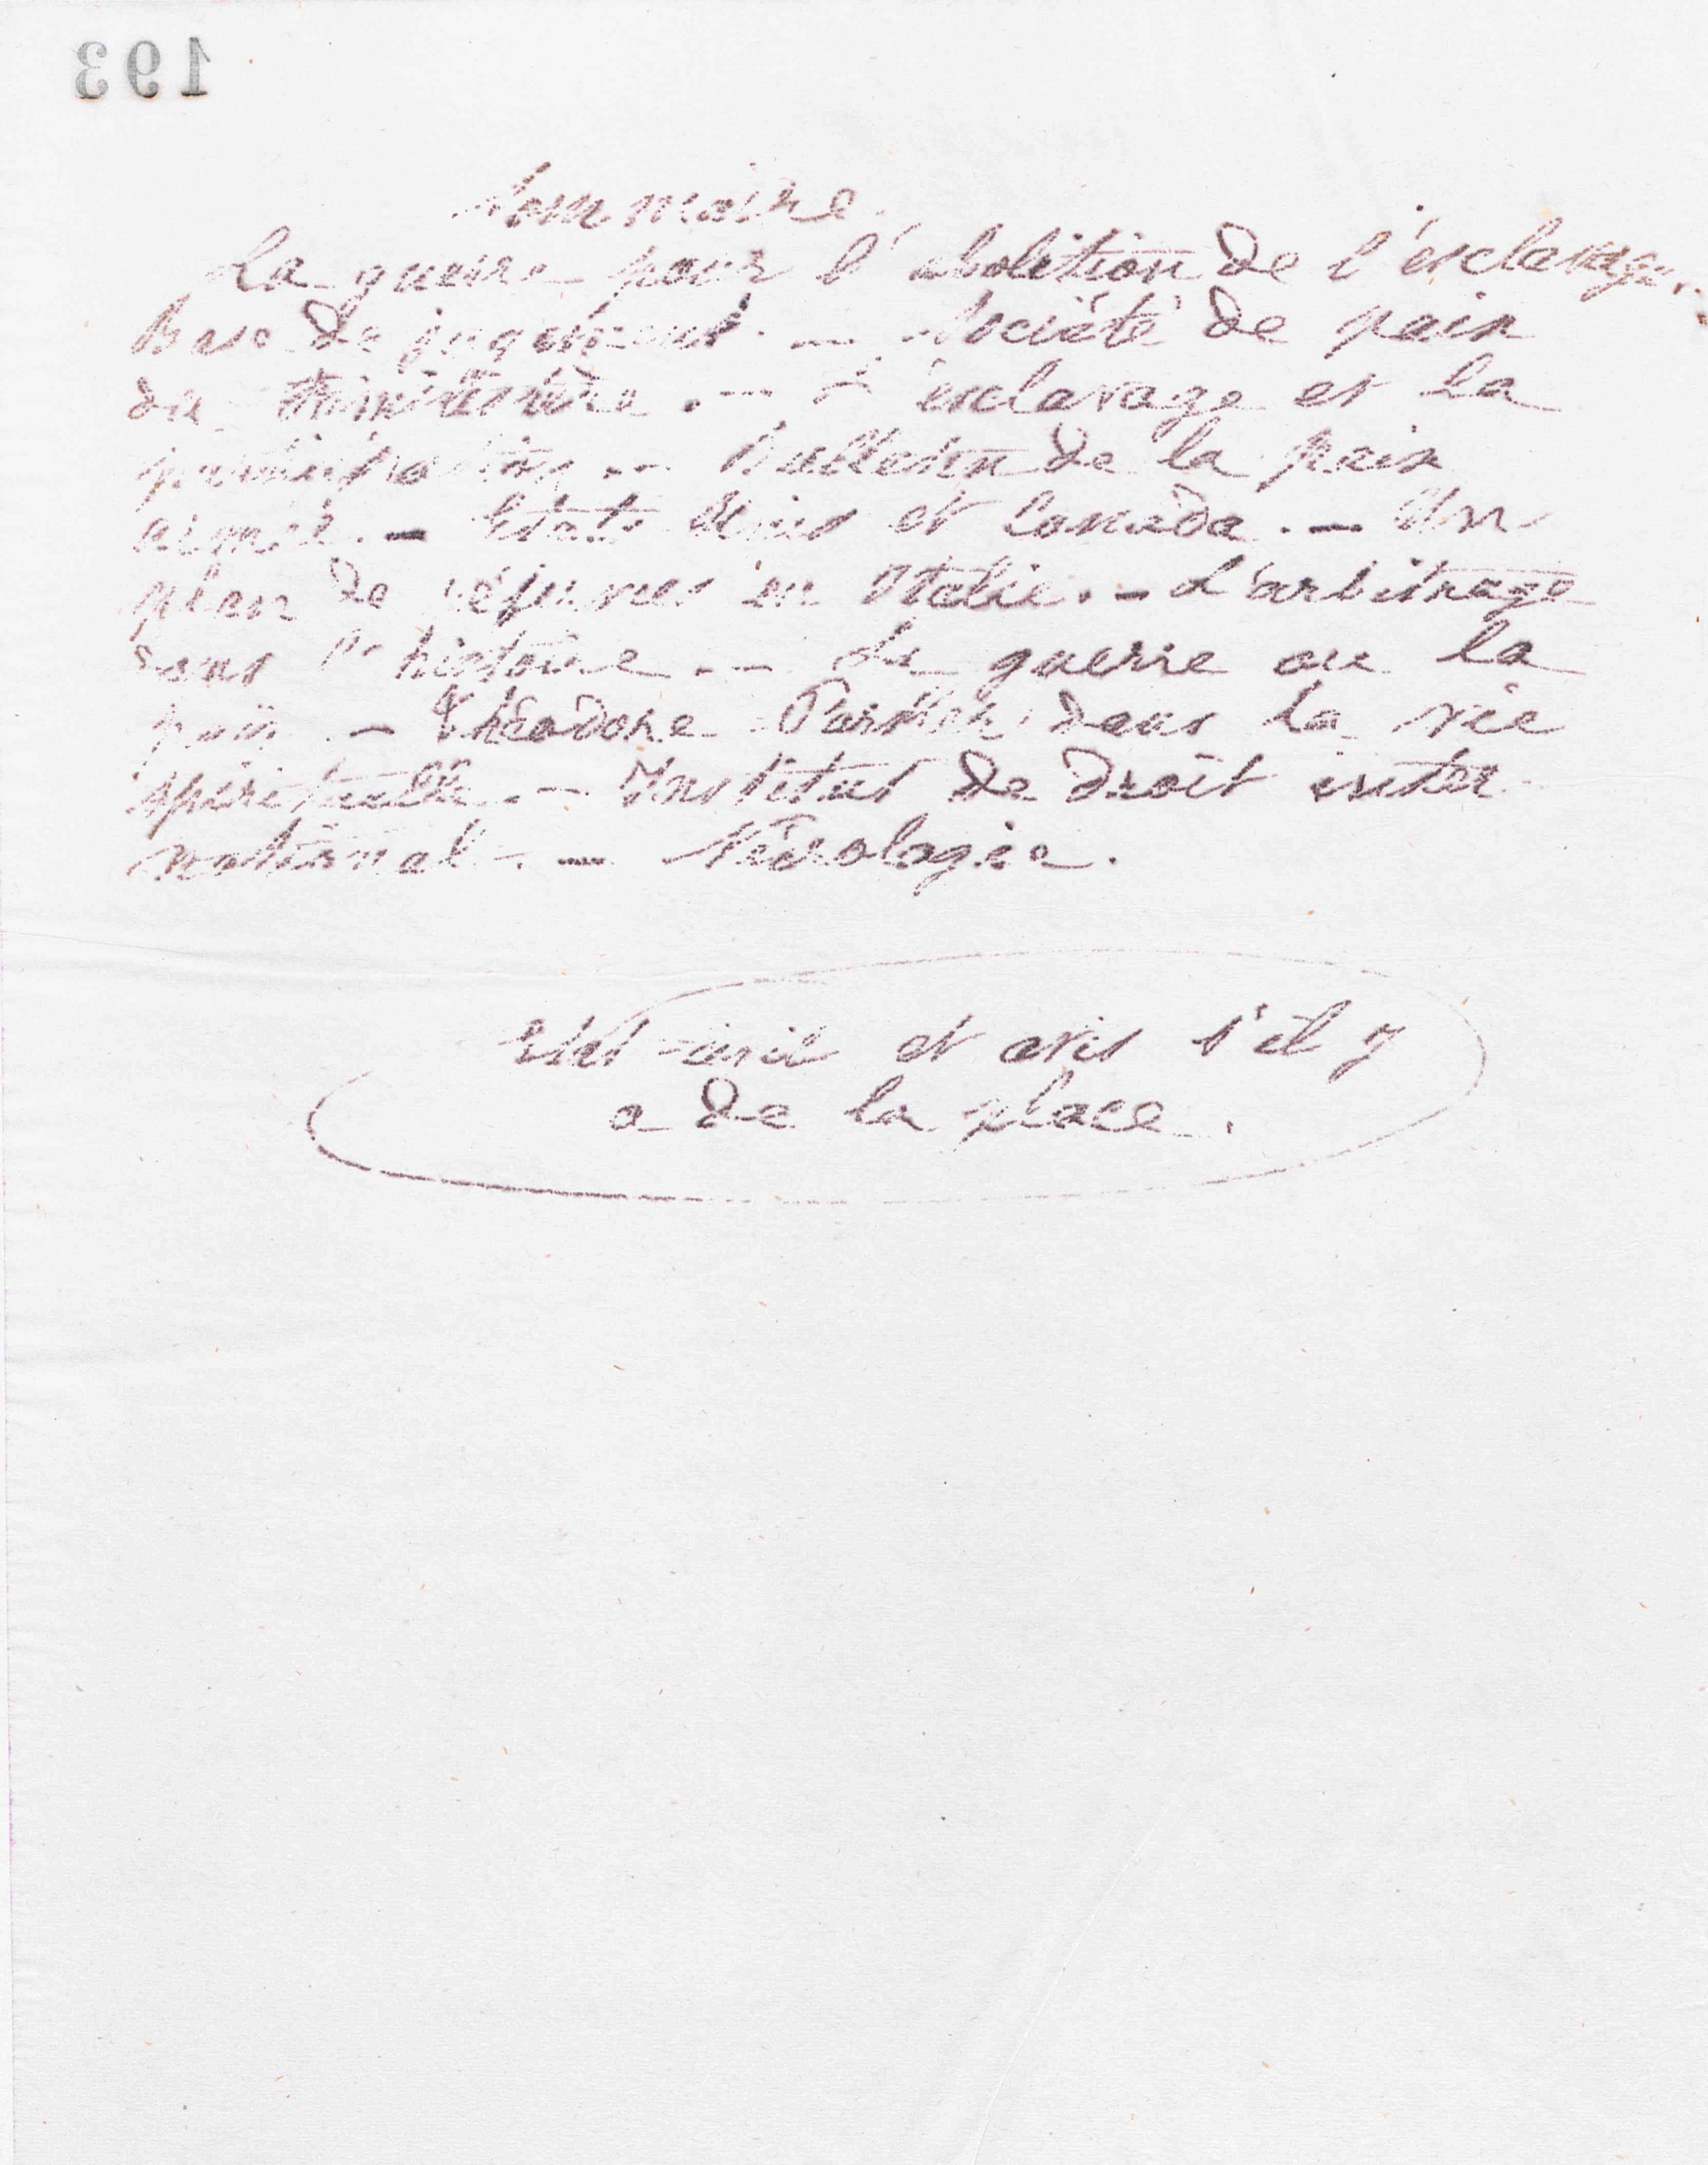 193
Sommaire.
La guerre pour l'abolition de l'esclavage.
Base de jugement. — Société de paix
du Familistère. — L'esclavage et la
participation. — Bulletin de la paix
armée. — Etats Unis et Canada. — Un
plan de réformes en Italie. — L'arbitrage
dans l'histoire. — La guerre ou la
paix. — Théodore Parker dans la vie
spirituelle. — Institut de droit inter
national. — Nécrologie.
Etat-civil et avis s'il y
a de la place.